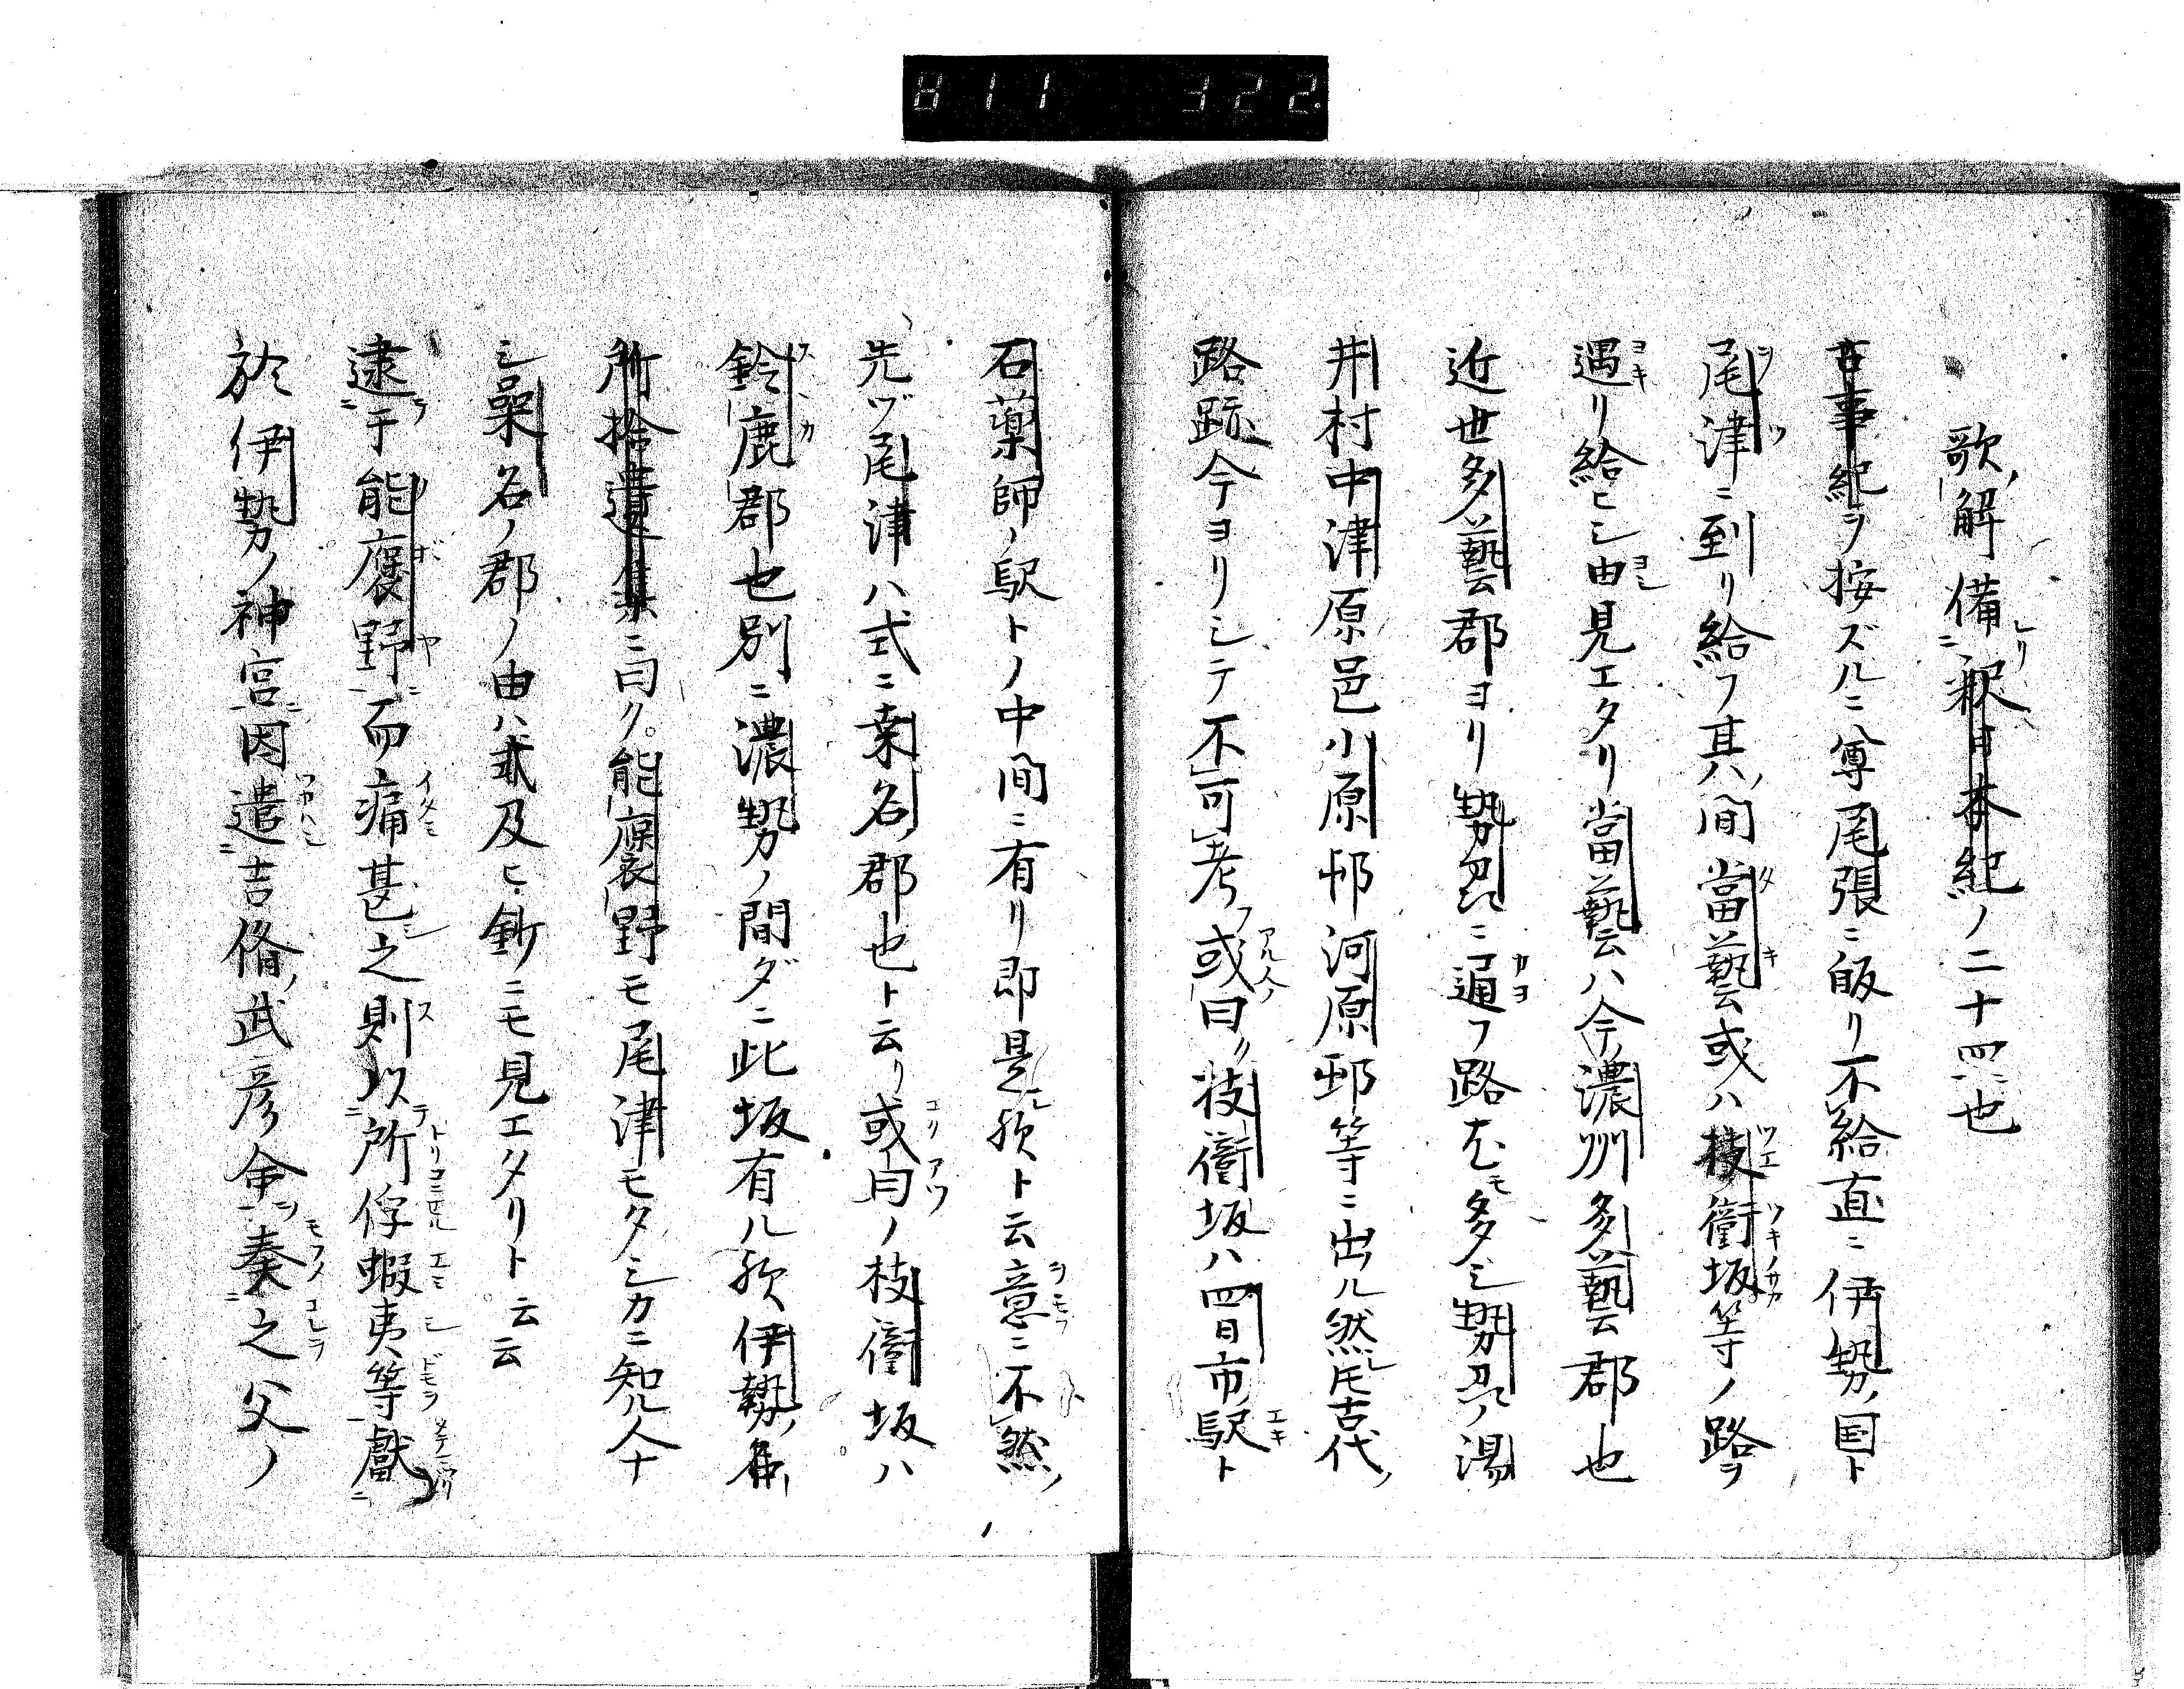 811 322.
歌ノ解備ニ釈日本紀ノ二十四ニ也
古事紀ヲ按ズルニ尊尾張ニ皈リ不給直ニ伊勢ノ国ト
尾津ニ到リ給フ其ノ間當藝或ハ杖衝坂等ノ路ヲ
遇リ給ヒシ由見エタリ當藝ハ今ノ濃州多藝郡也
近世多藝郡ヨリ勢州ニ通フ路尤モ多シ勢州ノ湯
井村中津原邑小原邨河原邨等ニ出ル然レ𪜈古代ノ
路跡今ヨリシテ不可考フ或曰ク杖衝坂ハ四日市ノ駅ト
石薬師ノ駅トノ中間ニ有リ即是レ欤ト云意ニ不然ノ
先ヅ尾津ハ式ニ桒名ノ郡也ト云リ或曰ノ杖衝坂ハ
鈴鹿郡也別ニ濃勢ノ間ダニ此坂有ル欤伊勢ノ名
所拾遺集ニ曰ク能褒野モ尾津モタシカニ知ル人ナ
シ桒名ノ郡ノ由ハ式及ヒ釈ニモ見エタリト云云
逮于能褒野而痛甚之則以所俘蝦夷等獻
於伊勢ノ神宮因遣吉備ノ武彦命奏之父ノ